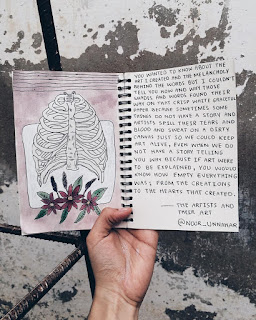 YOU WANTED TO KNOW ABOUT THE
ART I CREATED AND THE MELANCHOLY
BEHIND THE WORDS BUT I COULDN'T
TELL YOU HOW AND WHY THOSE
LINES AND WORDS FOUND THEIR
WAY ON THAT CRISP WHITE GRACEFUL
PAPER BECAUSE SOMETIMES SOME
THINGS DO NOT HAVE A STORY AND
ARTISTS SPILL THEIR TEARS AND
BLOOD AND SWEAT ON A DIRTY
CANVAS JUST SO WE COULD KEEP
ART ALIVE, EVEN WHEN WE DO
NOT HAVE A STORY TELLING
YOU WHY BECAUSE IF ART WERE
TO BE EXPLAINED, YOU WOULD
KNOW HOW EMPTY EVERYTHING
WAS; FROM THE CREATIONS
TO THE HEARTS THAT CREATED.
— THE ARTISTS AND
THEIR ART
@NOOR_UNNAHAR